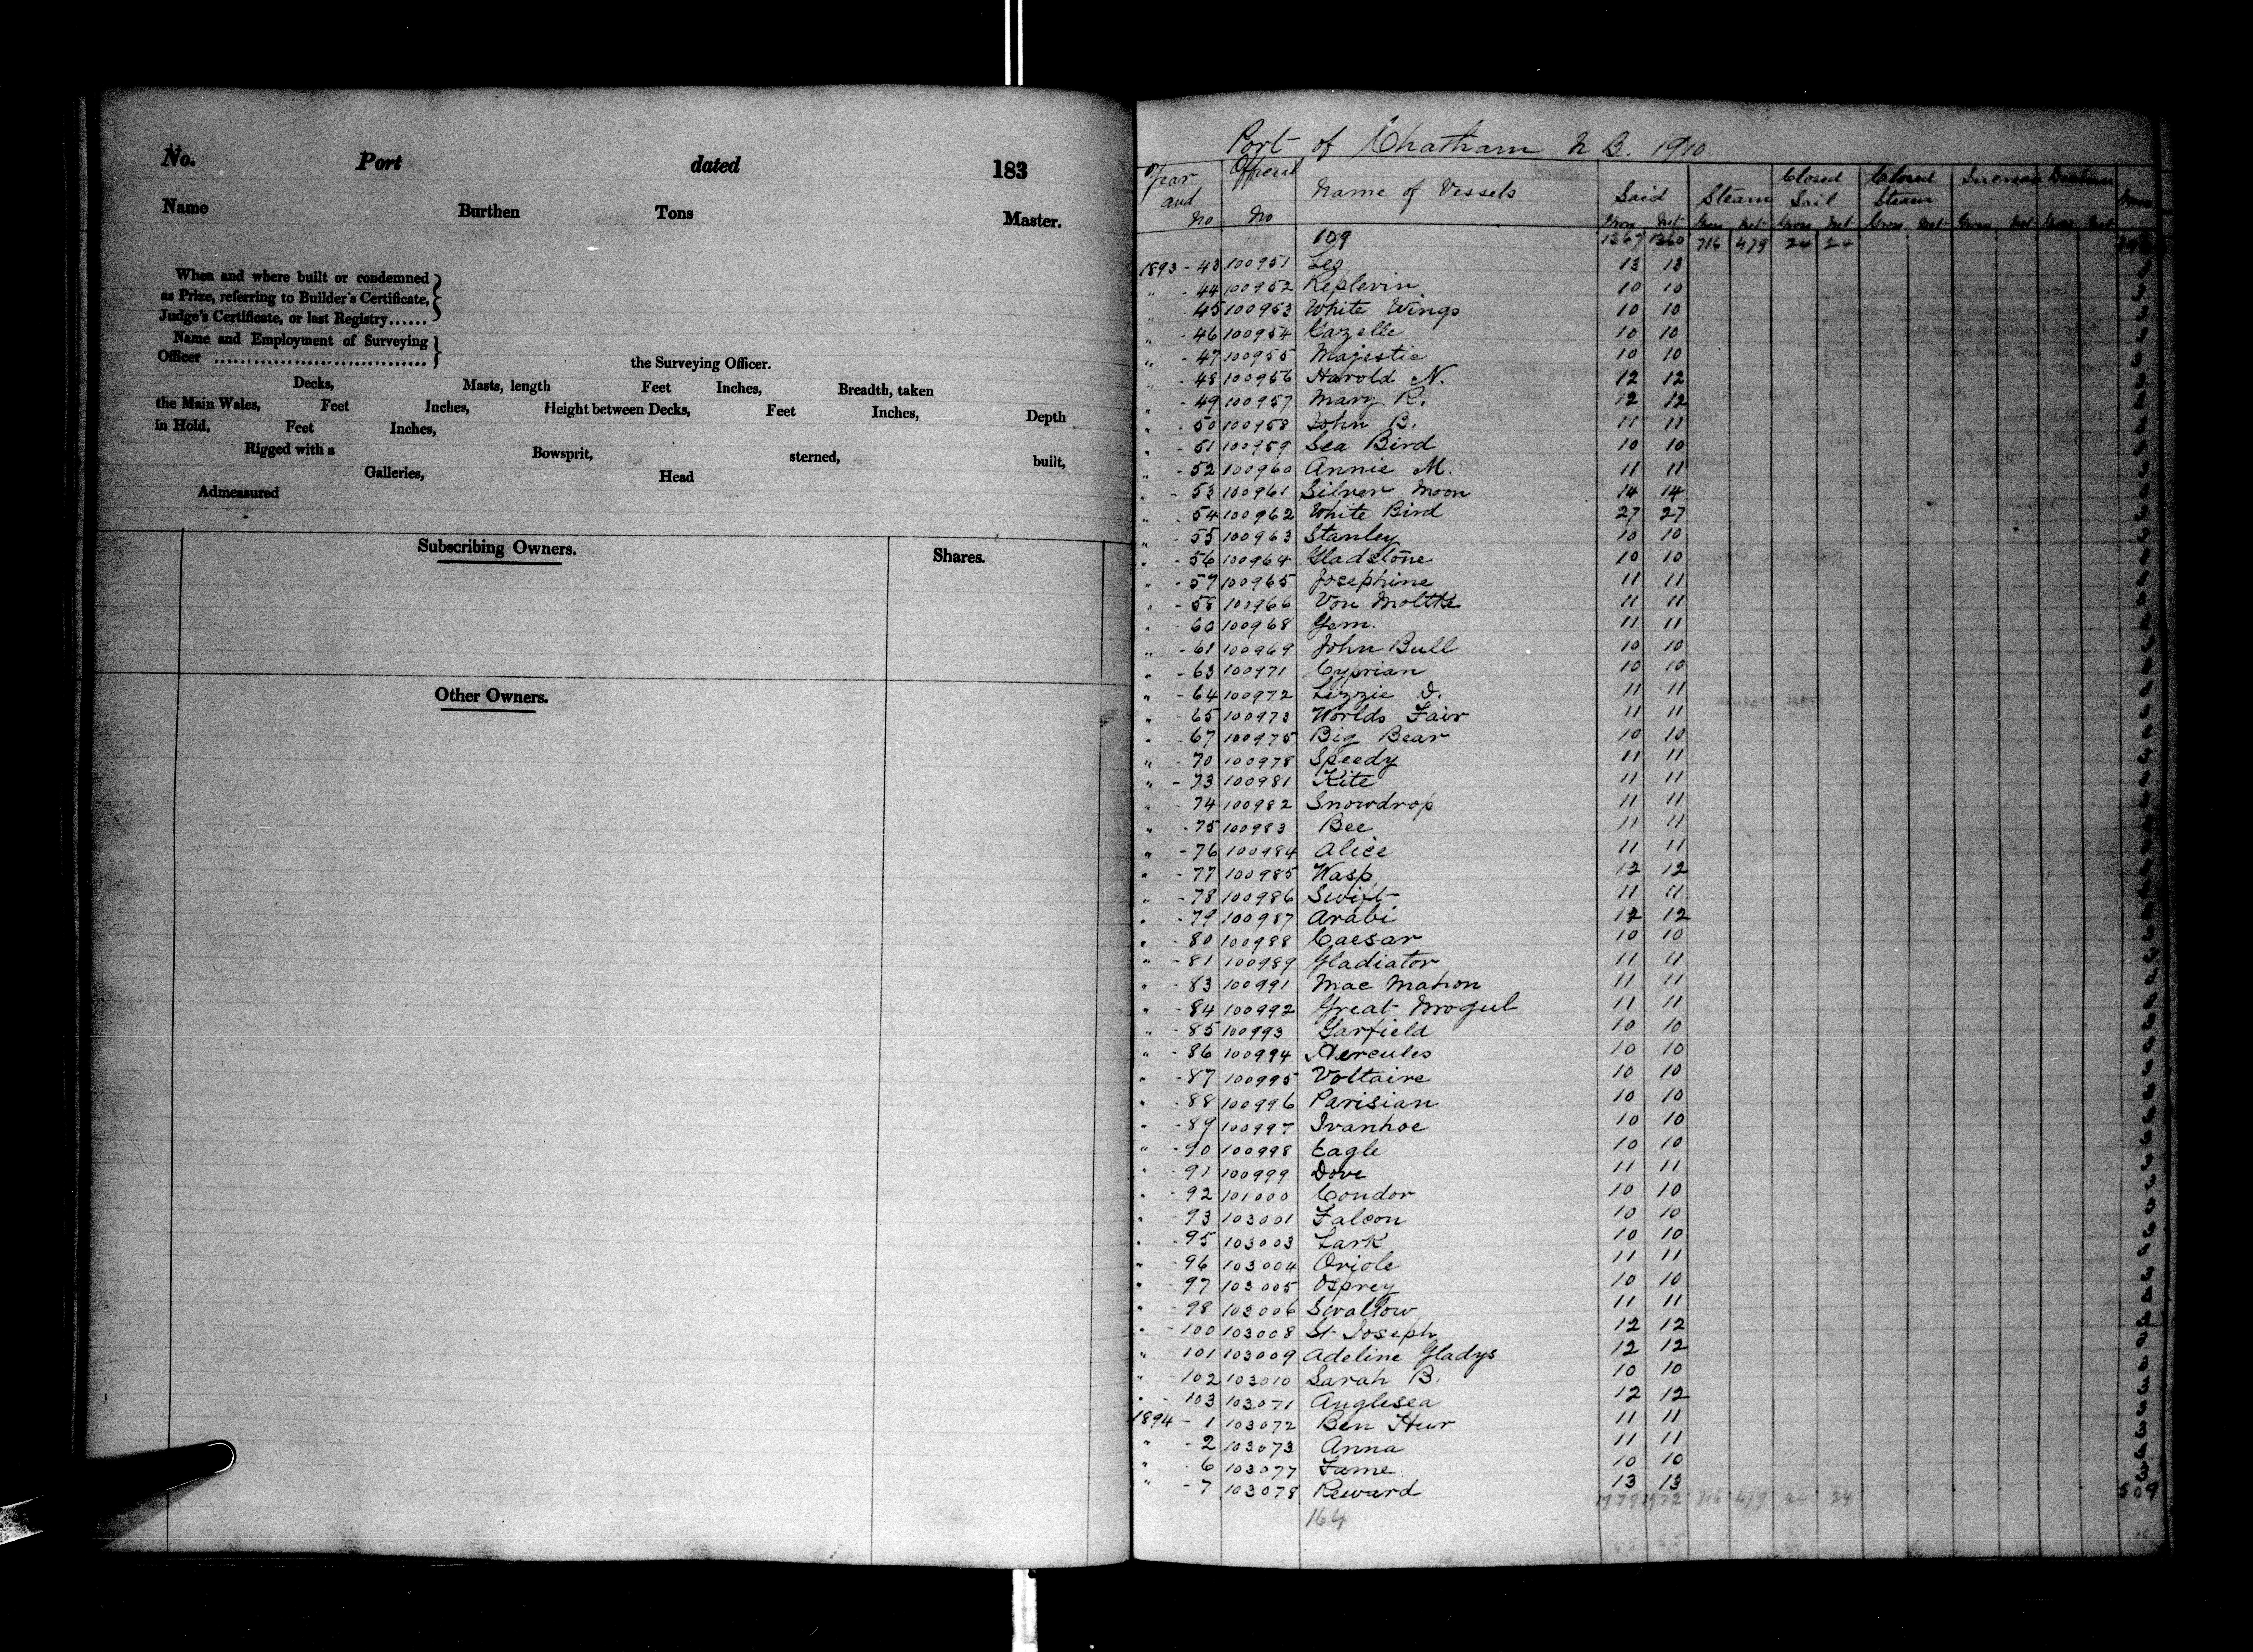 No. Port dated 183
Name Burthen Tons Master.
When and where built or condemned
as Prize, referring to Builder's Certificate,
Judge's Certificate, or last Registry......
Name and Employment of Surveying
Officer ................................ the Surveying Officer.
Decks, Masts, length Feet Inches, Breadth, taken
the Main Wales, Feet Inches, Height between Decks, Feet Inches, Depth
in Hold, Feet Inches,
Rigged with a Bowsprit, sterned, built,
Galleries, Head
Admeasured
Subscribing Owners. Shares.
Other Owners.
Port of Chatham N B. 1910
Year and No Official No Name of Vessels Said Steam Closed Sail Closed Steam Increase
Gross Net Gross Net Gross Net Gross Net Gross Net Gross Net
109 1367 1360 716 479 24 24
1893 - 43 100951 Leg 13 13
" - 44 100952 Replevin 10 10
" 45 100953 White Wings 10 10
" - 46 100954 Gazelle 10 10
" - 47 100955 Majestic 10 10
" - 48 100956 Harold N. 12 12
" - 49 100957 Mary R. 12 12
" - 50 100958 John B. 11 11
" - 51 100959 Sea Bird 10 10
" - 52 100960 Annie M. 11 11
" - 53 100961 Silver Moon 14 14
" - 54 100962 White Bird 27 27
" - 55 100963 Stanley 10 10
" - 56 100964 Gladstone 10 10
" - 57 100965 Josephine 11 11
" - 58 100966 Von Moltke 11 11
" - 60 100968 Gem. 11 11
" - 61 100969 John Bull 10 10
" - 63 100971 Cyprian 10 10
" - 64 100972 Lizzie D. 11 11
" - 65 100973 Worlds Fair 11 11
" - 67 100975 Big Bear 10 10
" - 70 100978 Speedy 11 11
" - 73 100981 Kite 11 11
" - 74 100982 Snowdrop 11 11
" - 75 100983 Bee 11 11
" - 76 100984 Alice 11 11
" - 77 100985 Wasp 12 12
" - 78 100986 Swift 11 11
" - 79 100987 Arabi 12 12
" - 80 100988 Caesar 10 10
" - 81 100989 Gladiator 11 11
" - 83 100991 Mac Mahon 11 11
" - 84 100992 Great Mogul 11 11
" - 85 100993 Garfield 10 10
" - 86 100994 Hercules 10 10
" - 87 100995 Voltaire 10 10
" - 88 100996 Parisian 10 10
" - 89 100997 Ivanhoe 10 10
" - 90 100998 Eagle 10 10
" - 91 100999 Dove 11 11
" - 92 101000 Condor 10 10
" - 93 103001 Falcon 10 10
" - 95 103003 Lark 10 10
" - 96 103004 Oriole 11 11
" - 97 103005 Osprey 10 10
" - 98 103006 Swallow 11 11
" - 100 103008 St Joseph 12 12
" 101 103009 Adeline Gladys 12 12
" 102 103010 Sarah B. 10 10
" - 103 103071 Anglesea 12 12
1894 - 1 103072 Ben Hur 11 11
" - 2 103073 Anna 11 11
" 6 103077 Fame 10 10
" - 7 103078 Reward 13 13
164 1979 1972 716 479 24 24 509